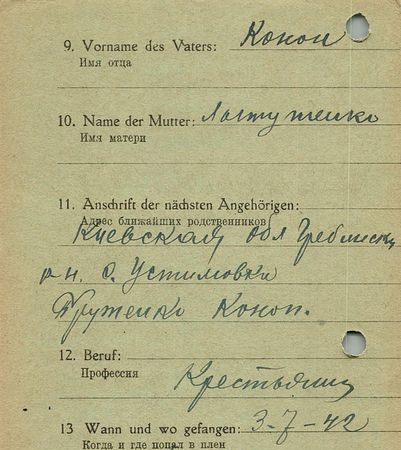 9. Vorname des Vaters: Конон
Имя отца
10. Name der Mutter:
Имя матери
11. Anschrift der nächsten Angehörigen:
Адрес ближайших родственников
Киевская обл Гребинский
р-н. с. Устимовка
Конон.
12. Beruf:
Профессия
Крестьянин
13 Wann und wo gefangen: 3-7-42
Когда и где попал в плен